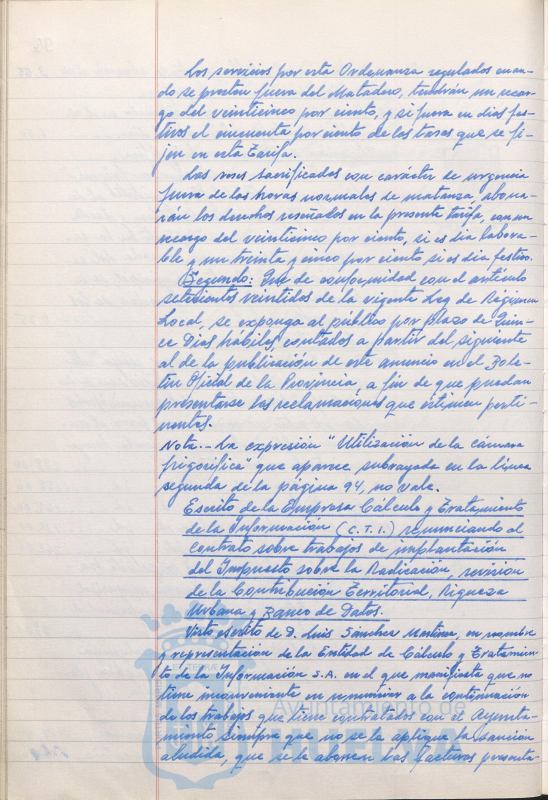 Los servicios por esta Ordenanza regulados cuan-
do se presten fuera del Matadero, tendrán un recar-
go del veinticinco por ciento, y si fuera en días fes-
tivos el cincuenta por ciento de las tasas que se fi-
jen en esta Tarifa.
Las reses sacrificadas con carácter de urgencia
fuera de las horas normales de matanza, abona-
rán los derechos reseñados en la presente tarifa, con un
recargo del veinticinco por ciento, si es día labora-
ble y un treinta y cinco por ciento si es día festivo.
Segundo: Que de conformidad con el artículo
setecientos veintidos de la vigente Ley de Régimen
Local, se exponga al público por plazo de Quin-
ce Días hábiles, contados a partir del siguiente
al de la publicación de este anuncio en el Bole-
tín Oficial de la Provincia, a fin de que puedan
presentarse las reclamaciones que estimen perti-
nentes.
Nota.- La expresión "Utilización de la cámara
frigorífica" que aparece subrayada en la línea
segunda de la página 94, no vale.
Escrito de la Empresa Cálculo y Tratamiento
de la Información (C.T.I.) renunciando al
contrato sobre trabajos de implantación
del Impuesto sobre la Radicación, revisión
de la Contribución Territorial, Riqueza
Urbana y Banco de Datos.
Visto escrito de D. Luis Sánchez Martínez, en nombre
y representación de la Entidad de Cálculo y Tratamien-
to de la Información S.A. en el que manifiesta que no
tiene inconveniente en renunciar a la continuación
de los trabajos que tiene contratados con el Ayunta-
miento siempre que no se la aplique la sanción
aludida, que se la abonen las facturas presenta-
Ayuntamiento de
HUELVA